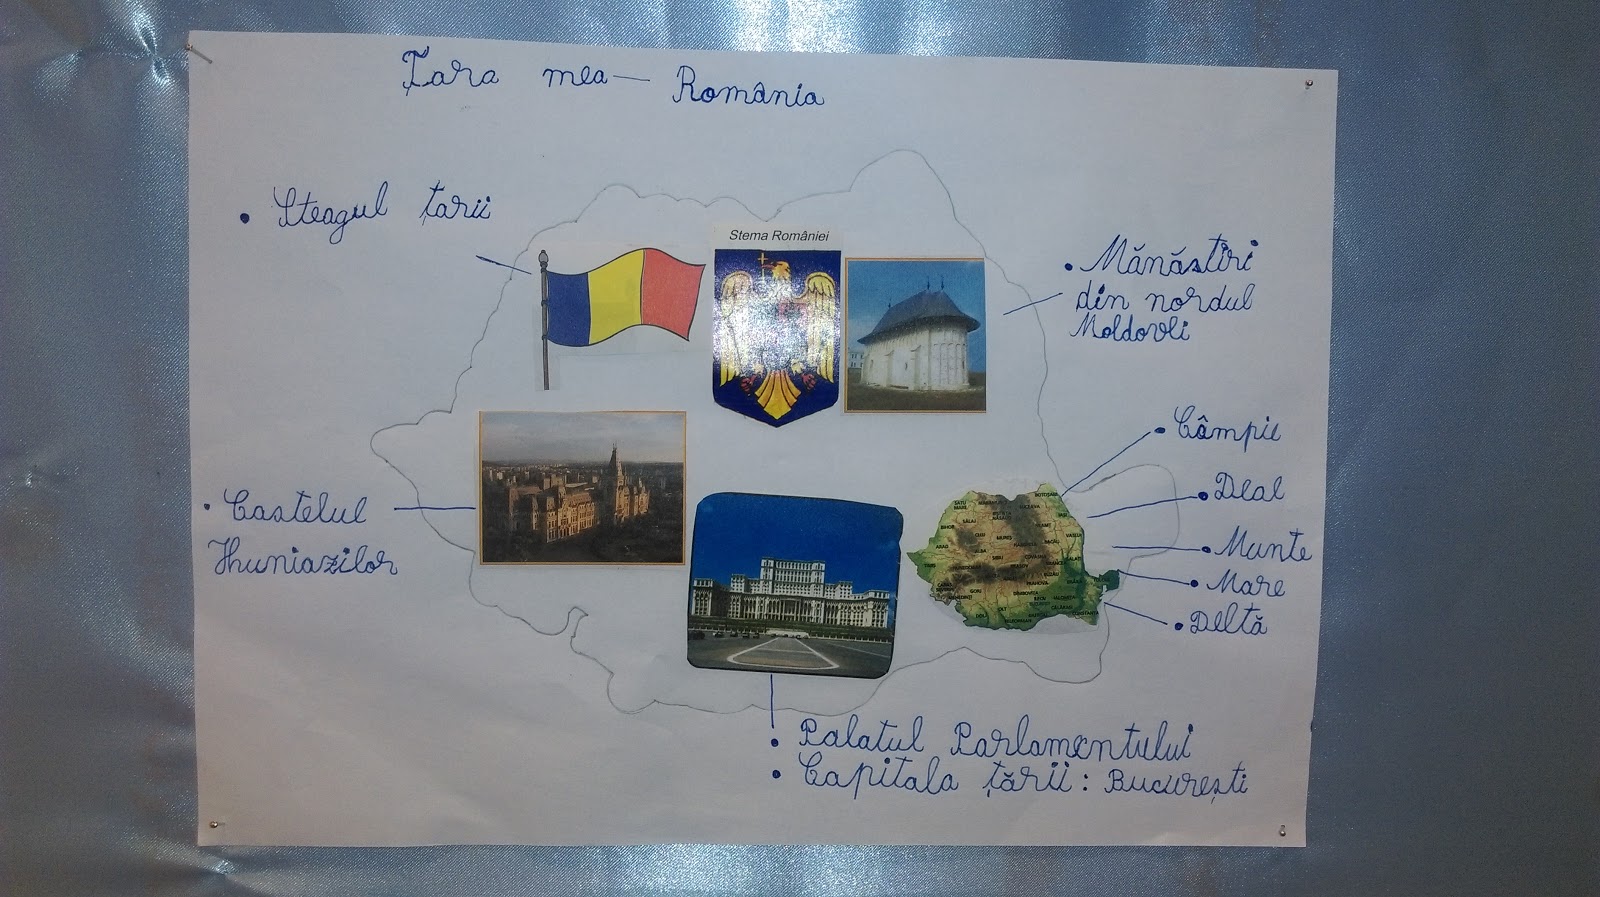 Țara mea — România
• Steagul țarii
Stema României
• Mănăstiri
din nordul
Moldovei
• Câmpie
• Deal
• Munte
• Mare
• Deltă
• Castelul
Huniazilor
• Palatul Parlamentului
• Capitala țării: București